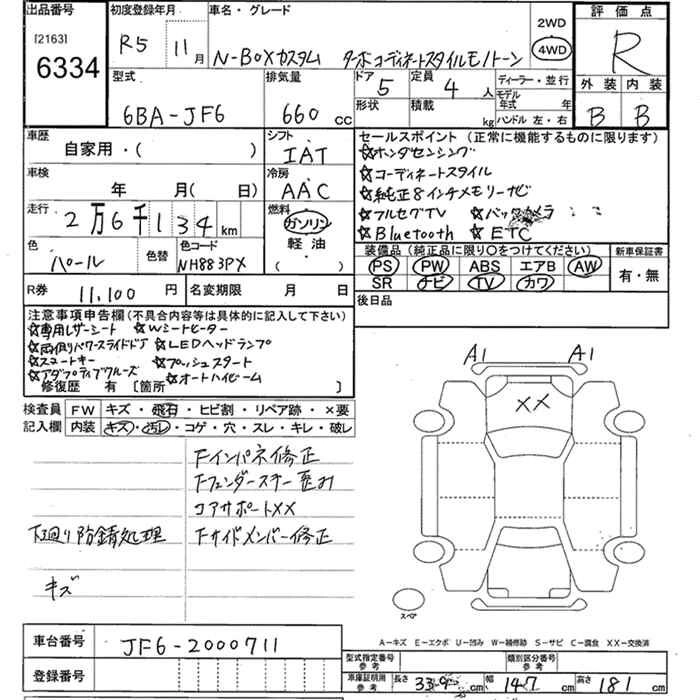 出品番号 初度登録年月 車名・グレード 2WD 評価点
[2163] R5 11月 N-BOXカスタム ターボコーディネートスタイルモノトーン 4WD R
6334
型式 排気量 ドア 定員 ディーラー・並行 外装 内装
6BA-JF6 660cc 5 4人 モデル年式 年 B B
形状 積載 kg ハンドル 左・右
車歴 シフト セールスポイント(正常に機能するものに限ります)
自家用・( ) IAT ☆ホンダセンシング
車検 冷房 ☆コーディネートスタイル
年 月( 日) AAC ☆純正8インチメモリーナビ
走行 燃料 ☆フルセグTV ☆バックカメラ
2万6千134km ガソリン ☆Bluetooth ☆ETC
色 色替 色コード 軽油・ 装備品(純正品に限り○をつけてください) 新車保証書
パール NH883PX ( ) PS PW ABS エアB AW 有・無
SR ナビ TV カワ
R券 11,100円 名変期限 月 日 後日品
注意事項申告欄(不具合内容等は具体的に記入して下さい)
☆専用レザーシート ☆Wシートヒーター
☆両側パワースライドドア ☆LEDヘッドランプ
☆スマートキー ☆プッシュスタート
☆アダプティブクルーズ ☆オートハイビーム
修復歴 有 [箇所 ]
A1 A1
XX
検査員 FW キズ・飛石・ヒビ割・リペア跡・×要
記入欄 内装 キズ・汚レ・コゲ・穴・スレ・キレ・破レ
Fインパネ修正
Fフェンダーステー歪み
コアサポートXX
下廻り防錆処理 Fサイドメンバー修正
キズ
スペア
A-キズ E-エクボ U-凹み W-補修跡 S-サビ C-腐食 XX-交換済
車台番号 JF6-2000711
型式指定番号 参考 類別区分番号 参考
登録番号
車庫証明用 参考 長さ 339cm 幅 147cm 高さ 181cm